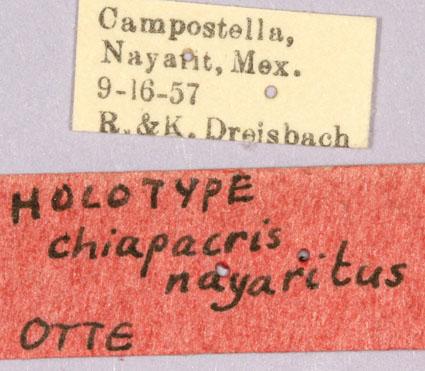 Campostella,
Nayarit, Mex.
9-16-57
R. & K. Dreisbach
HOLOTYPE
chiapacris
nayaritus
OTTE